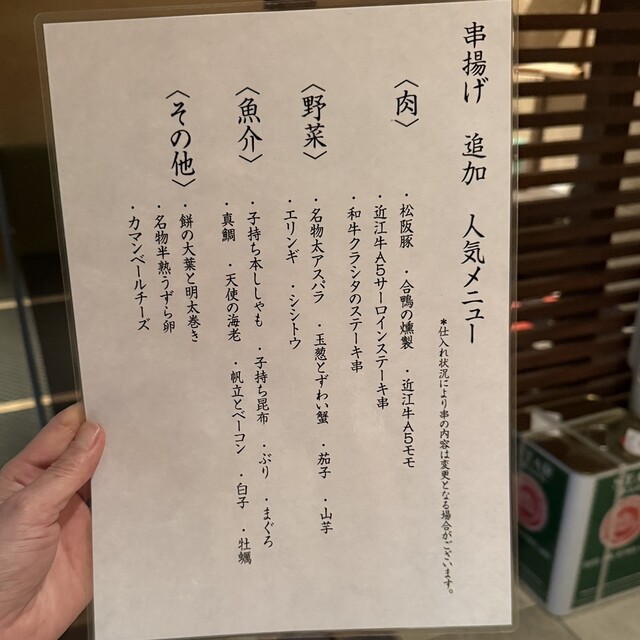 串揚げ　追加　人気メニュー
*仕入れ状況により串の内容は変更となる場合がございます。
〈肉〉
・松阪豚　・合鴨の燻製　・近江牛A5モモ
・近江牛A5サーロインステーキ串
・和牛クラシタのステーキ串
〈野菜〉
・名物太アスパラ　・玉葱とずわい蟹　・茄子　・山芋
・エリンギ　・シシトウ
〈魚介〉
・子持ち本ししゃも　・子持ち昆布　・ぶり　・まぐろ
・真鯛　・天使の海老　・帆立とベーコン　・白子　・牡蠣
〈その他〉
・餅の大葉と明太巻き
・名物半熟うずら卵
・カマンベールチーズ